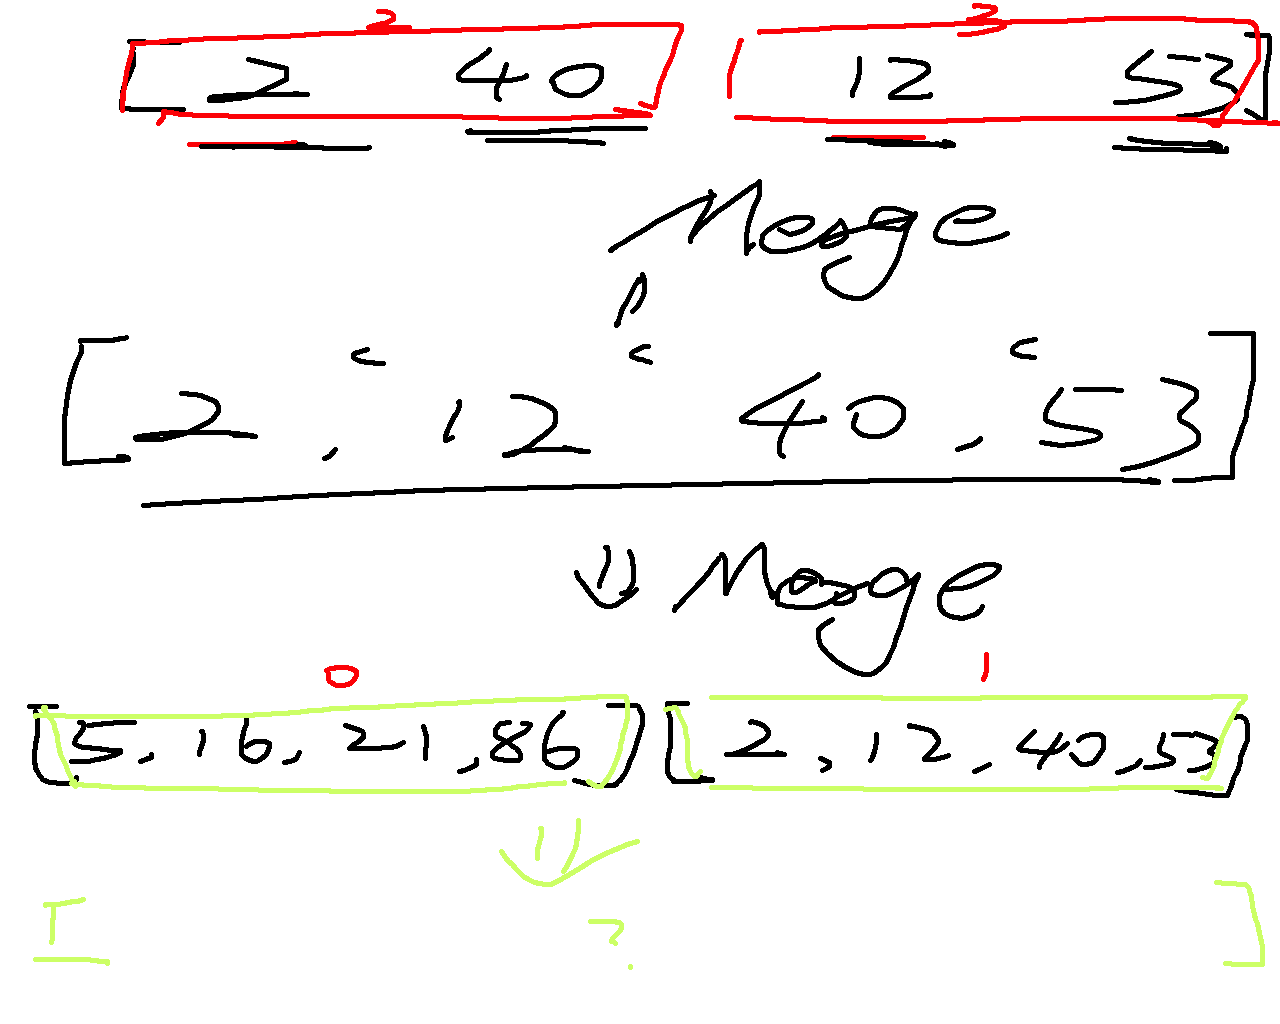 2 2
[ 2 40 12 53 ]
Merge
[ 2 , 12 40 , 53 ]
Merge
0 1
[5, 16, 21, 86] [2, 12, 40, 53]
[ ? ]